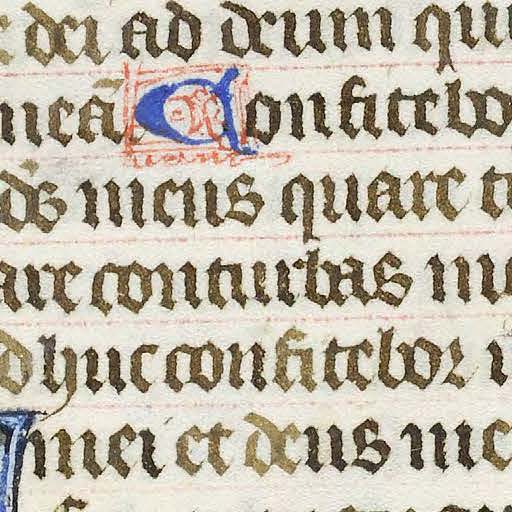 dei ad deum qui
meā Confitebo
ds̄ meus quare t
are conturbas me
dhuc confitebor
mei et deus me